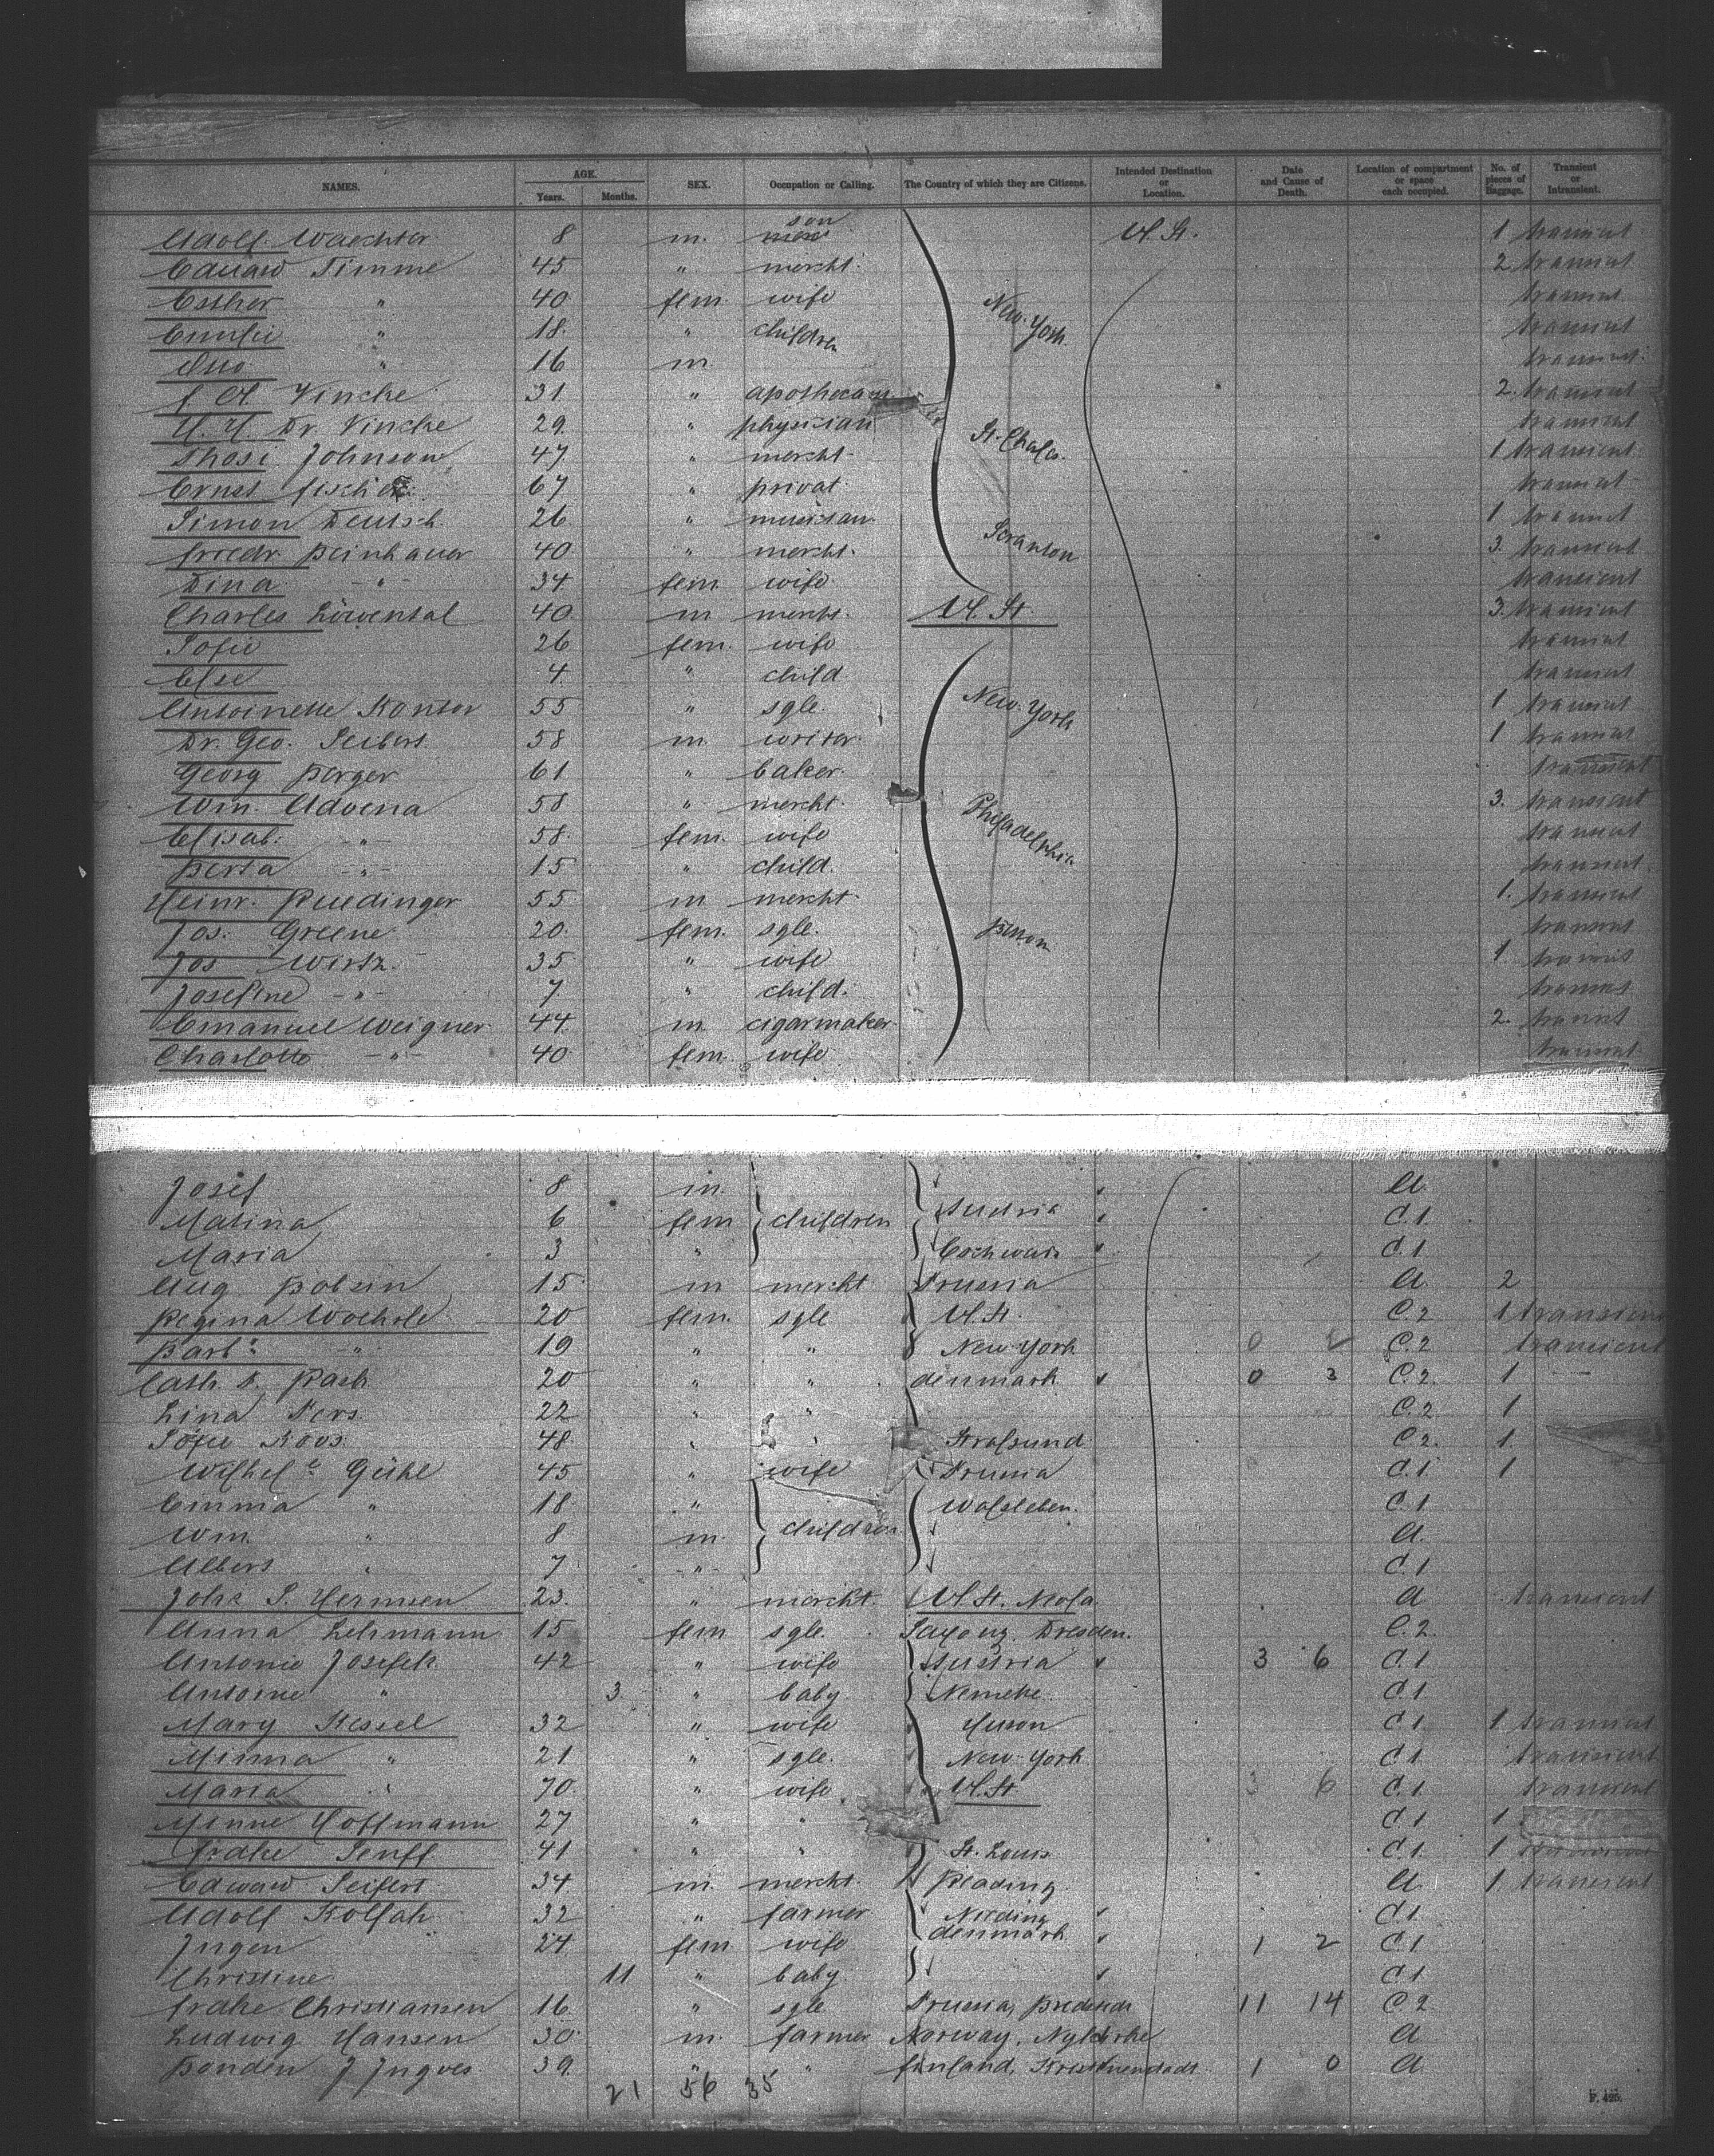 NAMES. AGE. Years. Months. SEX. Occupation or Calling. The Country of which they are Citizens. Intended Destination or Location. Date and Cause of Death. Location of compartment or space each occupied. No. of pieces of Baggage. Transient or Intransient.
Adolf Waechter 8 m. son U. St. 1 transient
Eduard Timme 45 " mercht. 2 transient
Esther " 40 fem. wife New-York transient
Emilie " 18 " children transient
Otto " 16 m. transient
F. A. Vincke 31 " apothecary 2. transient
H. H. Dr. Vincke 29 " physician St. Charles. transient
Johnson 47 " mercht. 1 transient
Ernst Fischer 67 " privat. transient
Simon Deutsch 26 " musician. 1 transient
Friedr. Beinhauer 40 " mercht. Scranton 3. transient
Dina -"- 34 fem. wife transient
Charles Löwental 40 m mercht. U. St. 3. transient
Sofie 26 fem. wife transient
Else 4 " child transient
Antoinette Kontor 55 " sgle. New-York 1 transient
Dr. Geo. Seibert 58 m. writer. 1 transient
Georg Berger 61 " baker. transient
Wm. Advena 58 " mercht. Philadelphia 3. transient
Elisab. -"- 58 fem. wife transient
Berta -"- 15 " child. transient
Heinr. Ruedinger 55 m mercht. 1. transient
Jos. Greene 20 fem. sgle. transient
Jos Wirtz 35 " wife 1 transient
Josefine -"- 7 " child. transient
Emanuel Weigner 44 m. cigarmaker. 2. transient
Charlotte -"- 40 fem. wife transient
Josef 8 m. A.
Matina 6 fem children Austria C.1.
Maria 3 " C.1
Aug 15 m mercht Prussia A. 2
Regina Woehrle 20 fem. sgle U. St. C.2 1 transient
Barb. " 19 " " New-York 0 C.2 transient
Cath 20 " " denmark 0 3 C.2. 1
Lina Pers 22 " " C.2 1
Sofie Koos 48 " " Stralsund C.2. 1.
Wilhel. Gühl 45 " wife Prussia C.1 1
Emma " 18 " Wolsleben. C.1
Wm. " 8 m. children A.
Albert " 7 " C.1
John S. Hermsen 23. " mercht. U. St. Neola. A transient
Anna Lehmann 15 fem sgle. Saxony. Dresden. C.2.
Antonie Josefek 42 " wife Austria 3 6 C.1
Antonie " 3. " baby. C.1
Mary Kessel 32 " wife Huron C.1 1 transient
Minna " 21 " sgle. New-York C.1 transient
Maria " 70. " wife U. St. 3 6 C.1. transient
Minne Hoffmann 27 " " C.1 1
Fradke Senff 41 " " St. Louis C.1. 1
Edward Seifert 34 m. mercht. Reading. A. 1. transient
Adolf 32 " farmer C.1.
Jngen 24 fem. wife denmark. 1 2 C.1
Christine 11 " baby. C.1
Fradke Christiansen 16. " sgle Prussia, 11 14 C.2
Ludwig Hansen 30 m. farmer Norway, A
J Jngves 39. " " finland, 1 0 A
21 56 35
F. 425.